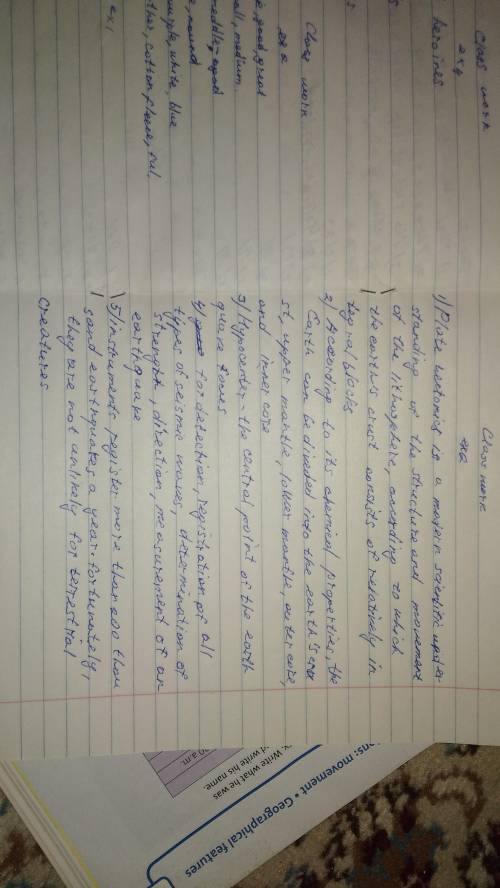 Class work
ex 4
heroines
s
Class work
ex 2
good, great
all, medium
middle-aged
round
purple, white, blue
ther, cotton, fleece, ful.
ex 1
Class work
ex 2
1) Plate tectonics is a modern scientific under-
standing of the structure and movement
of the lithosphere, according to which
the earth's crust consists of relatively in
tegral blocks
2) According to its chemical properties, the
Earth can be divided into the earth's cru
st, upper mantle, lower mantle, outer core,
and inner core
3) Hypocenter - the central point of the earth
quare focus
4) for detection, registration of all
types of seismic waves, determination of
strenght, direction, measurement of an
earthquake
5) Instruments register more than 200 thou
sand earthquakes a year. fortunately,
they are not unlikely for terrestrial
creatures
ons: movement • Geographical features
k. Write what he was
d write his name.
0 a.m.